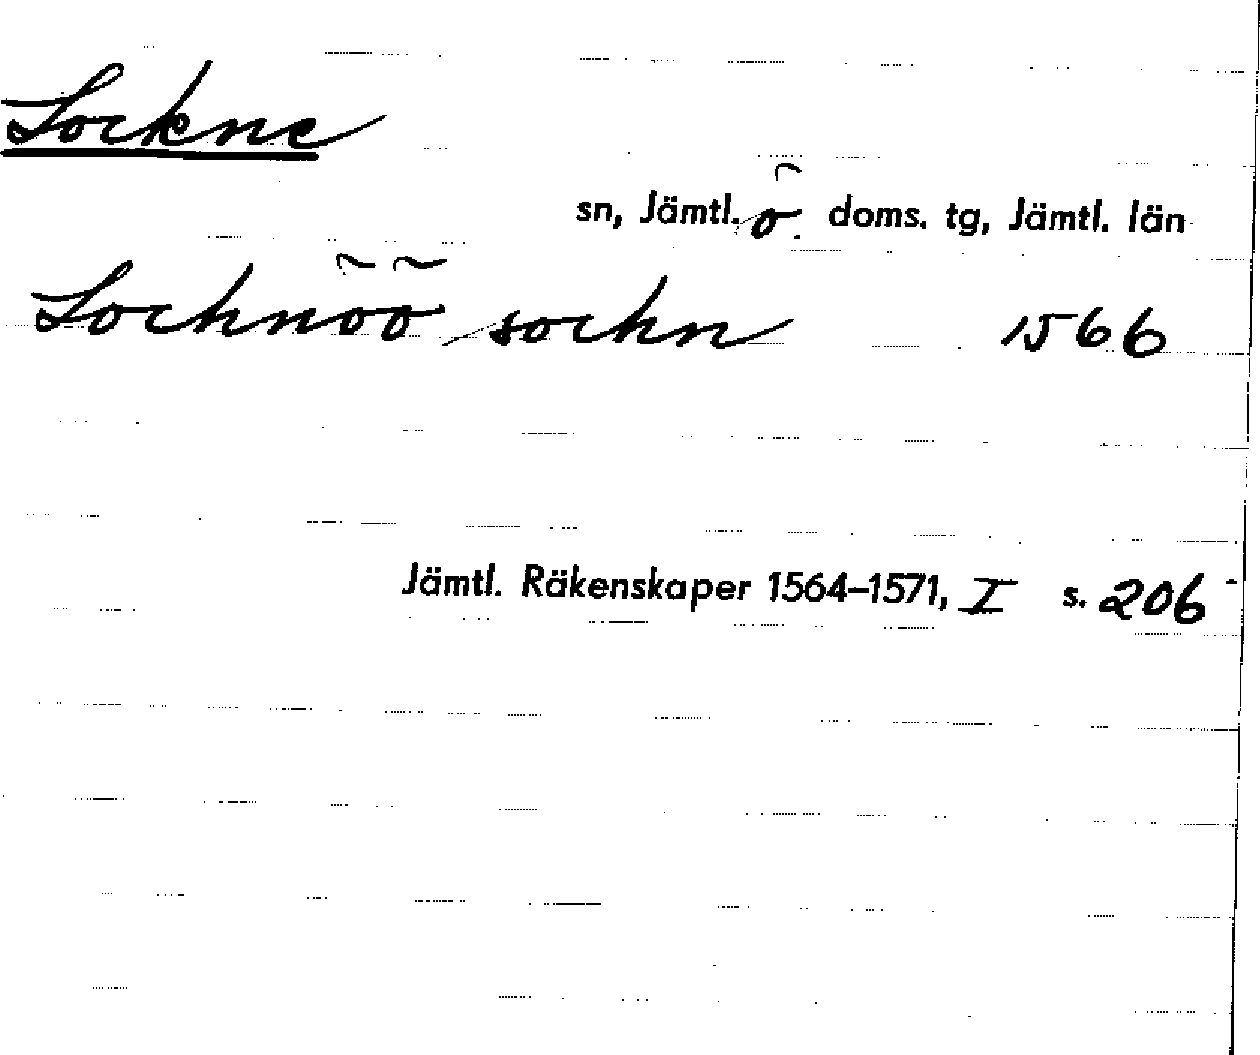 Lockne
sn, Jämtl. ö. doms. tg, Jämtl. län
Lochnöö sochn 1566
Jämtl. Räkenskaper 1564–1571, I s. 206